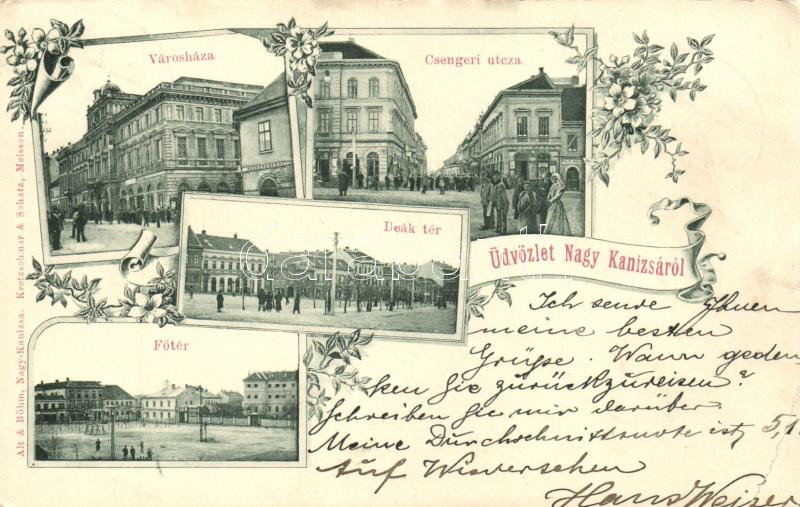 Városháza
Csengeri utcza
Deák tér
Üdvözlet Nagy Kanizsáról
Főtér
Alt & Böhm, Nagy-Kanizsa. Kretzschmar & Schatz, Meissen.
Ich sende Ihnen
meine besten
Grüße. Wann geden-
ken Sie zurückzureisen?
Schreiben Sie mir darüber.
Meine Durchschnittsnote ist 5,1
Auf Wiedersehen
Hans Weiser